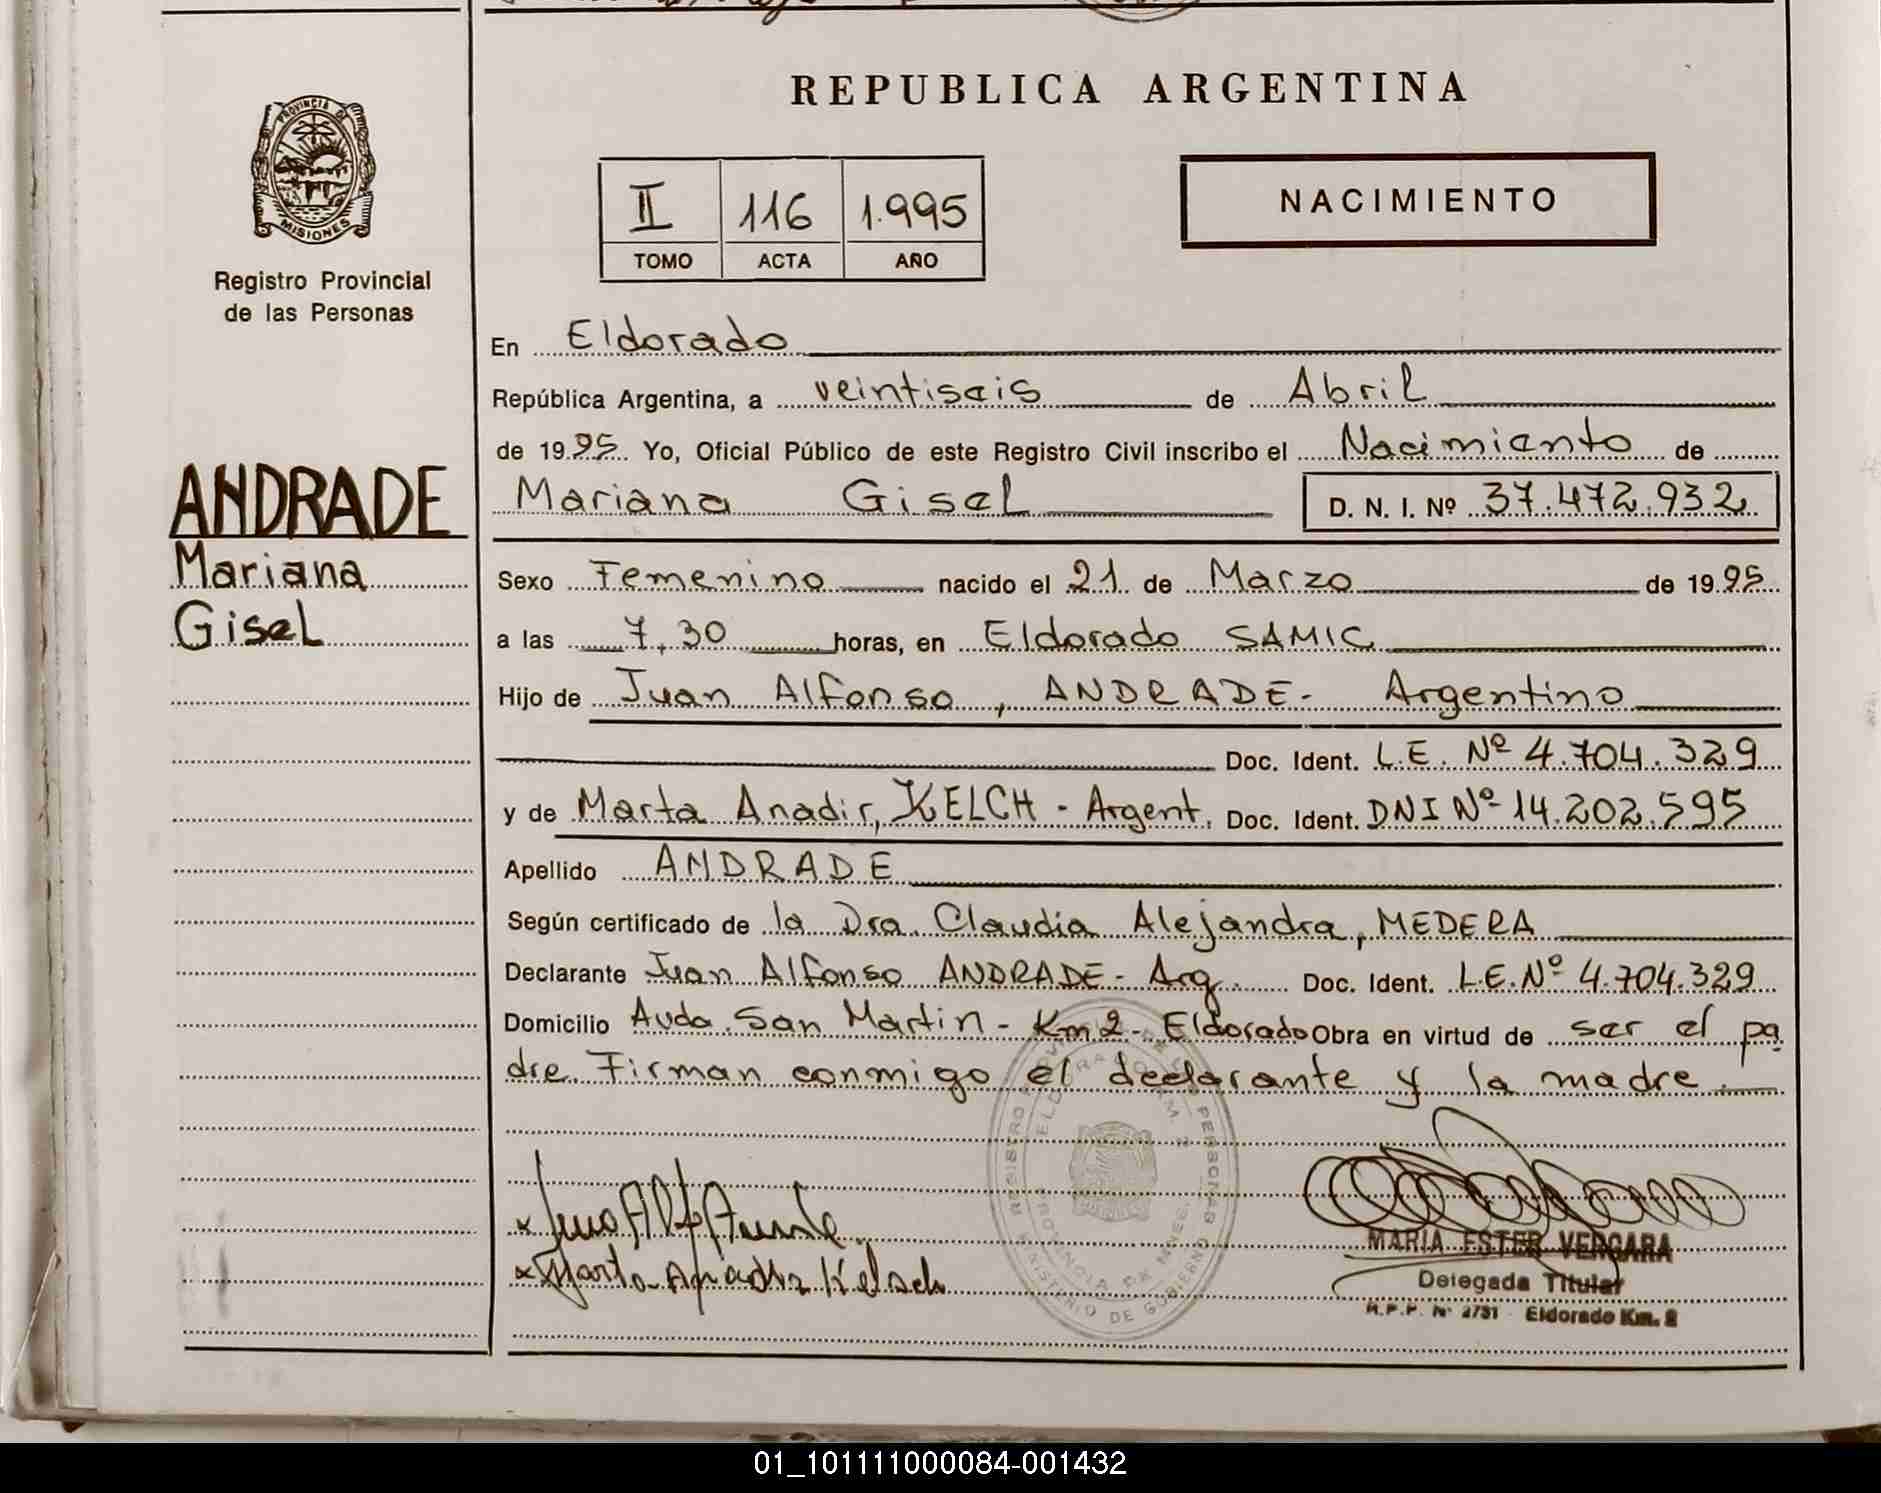 REPUBLICA ARGENTINA
PROVINCIA DE
MISIONES
Registro Provincial
de las Personas
II 116 1.995
TOMO ACTA AÑO
NACIMIENTO
En Eldorado
República Argentina, a veintiseis de Abril
de 1995 Yo, Oficial Público de este Registro Civil inscribo el Nacimiento de
ANDRADE
Mariana
Gisel
Mariana Gisel D. N. I. Nº 37.472.932
Sexo Femenino nacido el 21 de Marzo de 1995
a las 7,30 horas, en Eldorado SAMIC
Hijo de Juan Alfonso, ANDRADE- Argentino
Doc. Ident. L.E. Nº 4.704.329
y de Marta Anadir, KELCH - Argent. Doc. Ident. DNI Nº 14.202.595
Apellido ANDRADE
Según certificado de la Dra. Claudia Alejandra, MEDERA
Declarante Juan Alfonso ANDRADE- Arg. Doc. Ident. L.E. Nº 4.704.329
Domicilio Avda. San Martin - Km 2 - Eldorado Obra en virtud de ser el pa
dre. Firman conmigo el declarante y la madre.
REGISTRO PROVINCIAL DE LAS PERSONAS
ELDORADO KM. 2
PROVINCIA DE MNES.
MINISTERIO DE GOBIERNO
x Marta Anadir Kelsch
MARIA ESTER VERGARA
Delegada Titular
R.P.P. Nº 2731 - Eldorado Km. 2
01_101111000084-001432